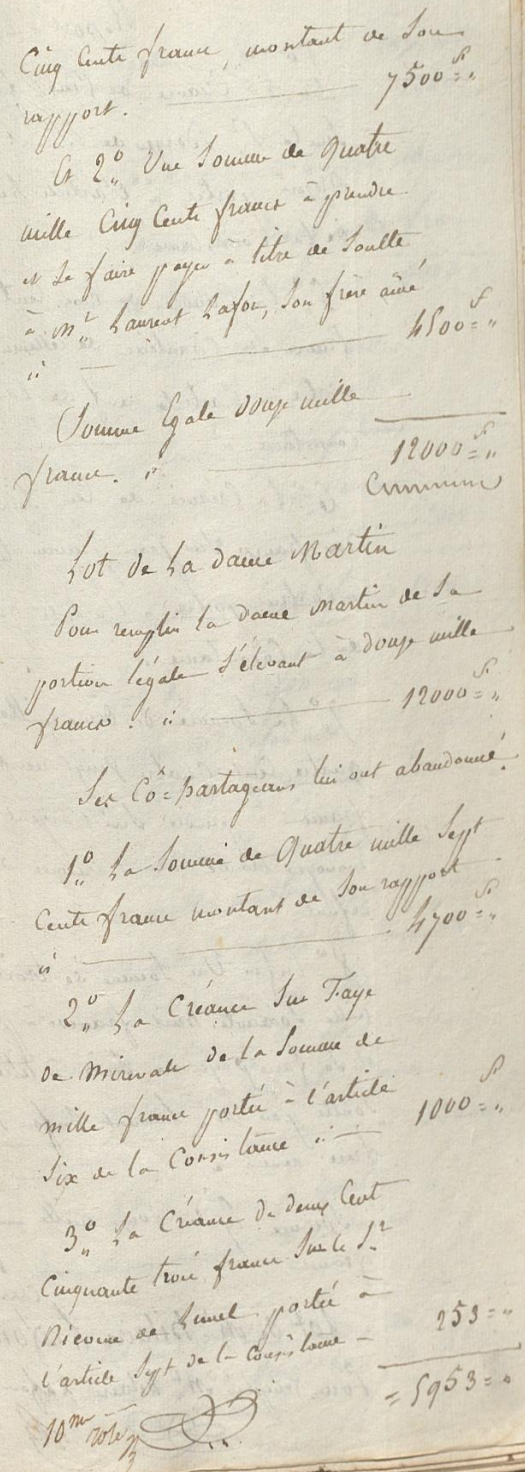 Cinq Cents francs, montant de Son
rapport. 7500 = "
Et 2° Une Somme de Quatre
mille Cinq Cents francs à prendre
et Se faire payer à titre de Soulte
à Mr Laurent Lafon, Son frère ainé
" 4500 = "
Somme Egale douze mille
francs. " 12000 = "
Lot de La dame Martin
Pour remplir la dame Martin de Sa
portion légale S'élevant à douze mille
francs. " 12000 = "
Ses Cô=partageans lui ont abandonné.
1° La Somme de Quatre mille Sept
Cents francs montant de Son rapport
" 4700 = "
2° La Créance Sur Faye
de Mirevale de la Somme de
mille francs portée à l'article
Six de la Consistance " 1000 = "
3° La Créance de deux Cent
Cinquante trois francs Sur le Sr
de Lunel portée à
l'article Sept de la Consistance 253 = "
= 5953 = "
10me rôle